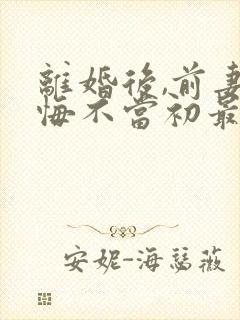 離婚後,前妻
悔不當初最
安妮-海瑟薇